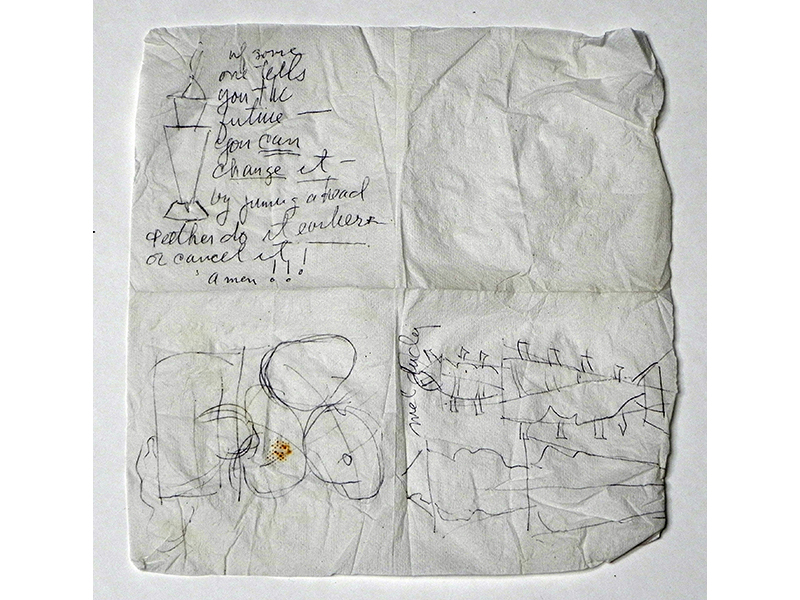 if some
one tells
you the
future —
you can
change it —
by jumping ahead
& either do it earlier
or cancel it
Amen !!!